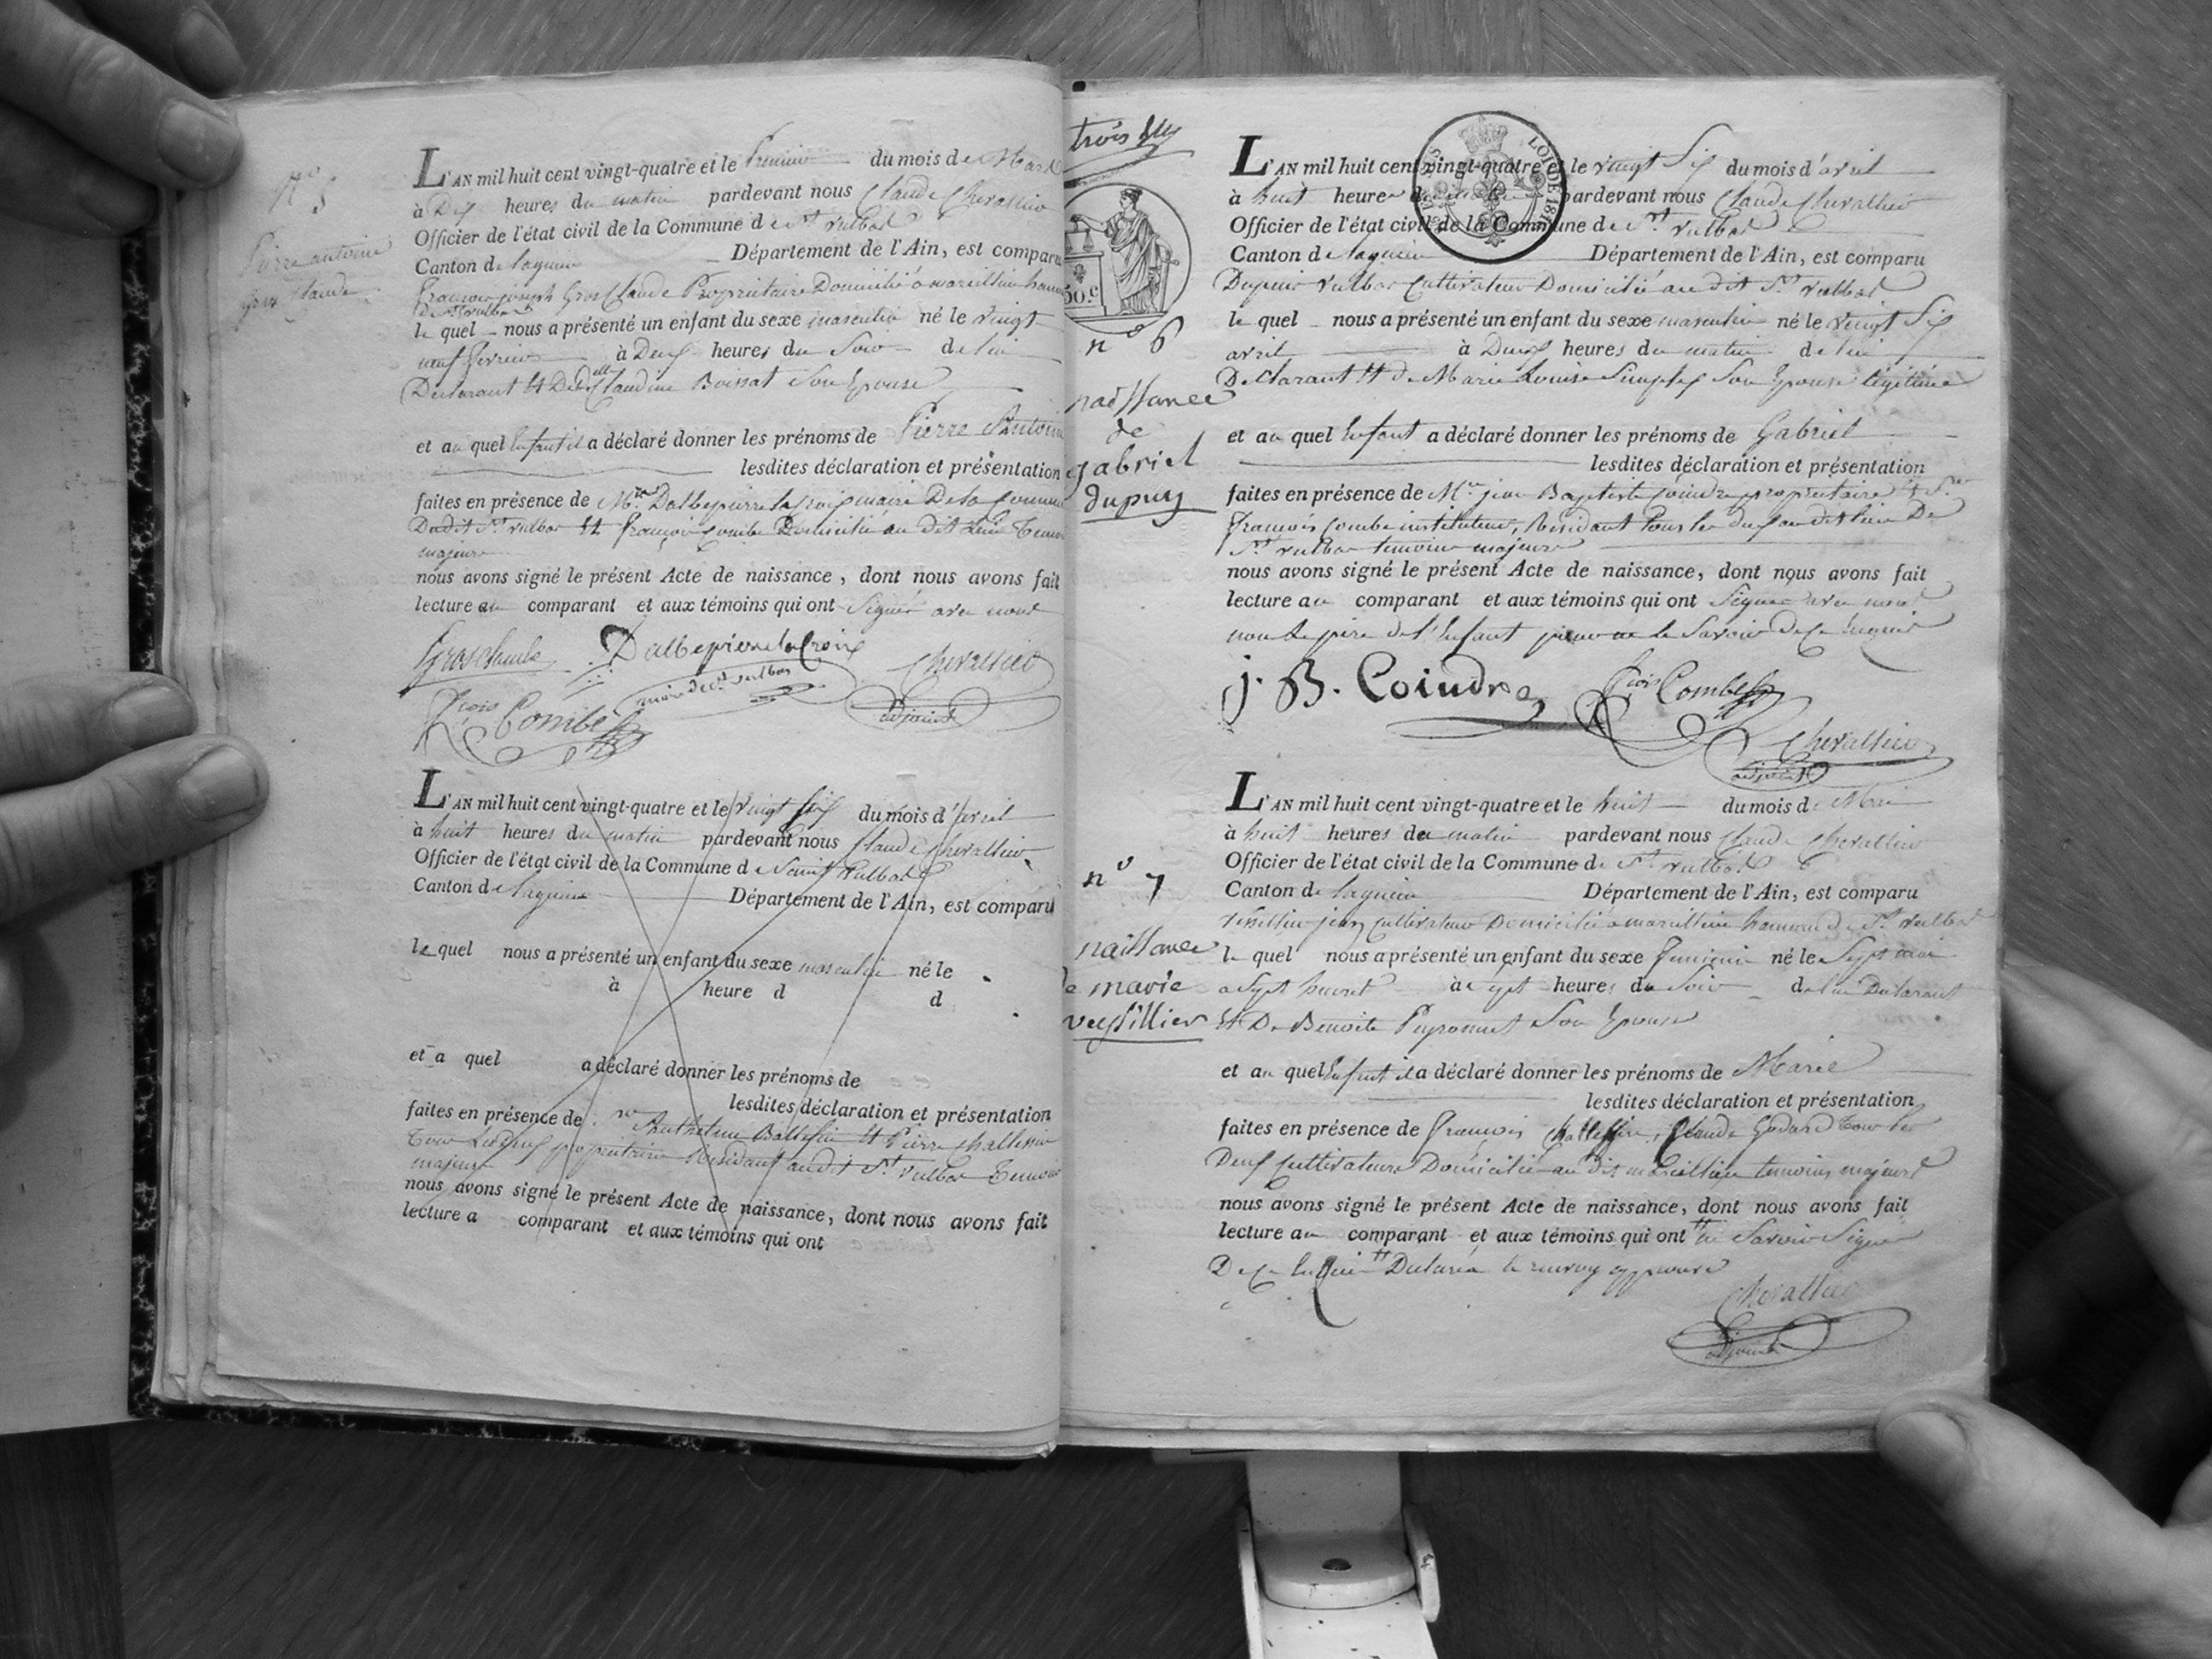 N° 5
Pierre antoine
gros Claude
L'AN mil huit cent vingt-quatre et le Premier du mois de Mars
à Dix heures du matin pardevant nous Claude Chevallier
Officier de l'état civil de la Commune de St vulbas
Canton de lagnieu Département de l'Ain, est comparu
françois joseph Gros Claude Propriétaire Domicilié à marcillieu hameau
De St vulbas
le quel nous a présenté un enfant du sexe masculin né le vingt
neuf fevrier à Deux heures du Soir de lui
Declarant Et De Claudine Boissat Son Epouse
et au quel Enfant il a déclaré donner les prénoms de Pierre Antoine
lesdites déclaration et présentation
faites en présence de Mr Dalbepierre lacroix maire De la Commune
Dudit St vulbas Et François Combe Domicilié au dit Lieu Temoins
majeurs
nous avons signé le présent Acte de naissance, dont nous avons fait
lecture au comparant et aux témoins qui ont Signés avec nous
Grosclaude Dalbepierre la Croix Chevallier
maire de St vulbas
fçois Combe adjoint
L'AN mil huit cent vingt-quatre et le vingt Six du mois d'avril
à huit heures du matin pardevant nous Claude Chevallier
Officier de l'état civil de la Commune de Saint Vulbas
Canton de lagnieu Département de l'Ain, est comparu
le quel nous a présenté un enfant du sexe masculin né le
à heure d d
et a quel a déclaré donner les prénoms de
lesdites déclaration et présentation
faites en présence de Anthelme Et Pierre
Tous Les Deux propriétaires Residant audit St vulbas Temoins
majeurs
nous avons signé le présent Acte de naissance, dont nous avons fait
lecture a comparant et aux témoins qui ont
trois
50 c
n° 6
naissance
de
gabriel
dupuy
LOI DE 1816
L'AN mil huit cent vingt-quatre et le vingt Six du mois d'avril
à huit heures du matin pardevant nous Claude Chevallier
Officier de l'état civil de la Commune de St vulbas
Canton de lagnieu Département de l'Ain, est comparu
Dupuis vulbas Cultivateur Domicilié au dit St vulbas
le quel nous a présenté un enfant du sexe masculin né le vingt Six
avril à Deux heures du matin de lui
Declarant Et de Marie Louise Son Epouse légitime
et au quel Enfant a déclaré donner les prénoms de Gabriel
lesdites déclaration et présentation
faites en présence de Mr jean Baptiste Coindre propriétaire Et Sr
François Combe instituteur, Residant Tous les deux au dit lieu De
St vulbas temoins majeurs
nous avons signé le présent Acte de naissance, dont nous avons fait
lecture au comparant et aux témoins qui ont Signés avec nous
non le père de l'Enfant pour ne le Savoir de ce Enquis
j. B. Coindre fçois Combe
Chevallier
adjoint
n° 7
naissance
de marie
veyssillier
L'AN mil huit cent vingt-quatre et le huit du mois de Mai
à huit heures du matin pardevant nous Claude Chevallier
Officier de l'état civil de la Commune de St vulbas
Canton de lagnieu Département de l'Ain, est comparu
jean Cultivateur Domicilié a marcillieu hameau de St vulbas
le quel nous a présenté un enfant du sexe feminin né le Sept mai
a Sept heures à Sept heures du Soir de lui Declarant
Et De Benoite Peyronnet Son Epouse
et au quel Enfant il a déclaré donner les prénoms de Marie
lesdites déclaration et présentation
faites en présence de François Claude Godard Tous les
Deux Cultivateurs Domicilié au dit marcillieu temoins majeurs
nous avons signé le présent Acte de naissance, dont nous avons fait
lecture au comparant et aux témoins qui ont Savoir Signer
De ce Enquis Declaré le renvoy approuvé
Chevallier
adjoint